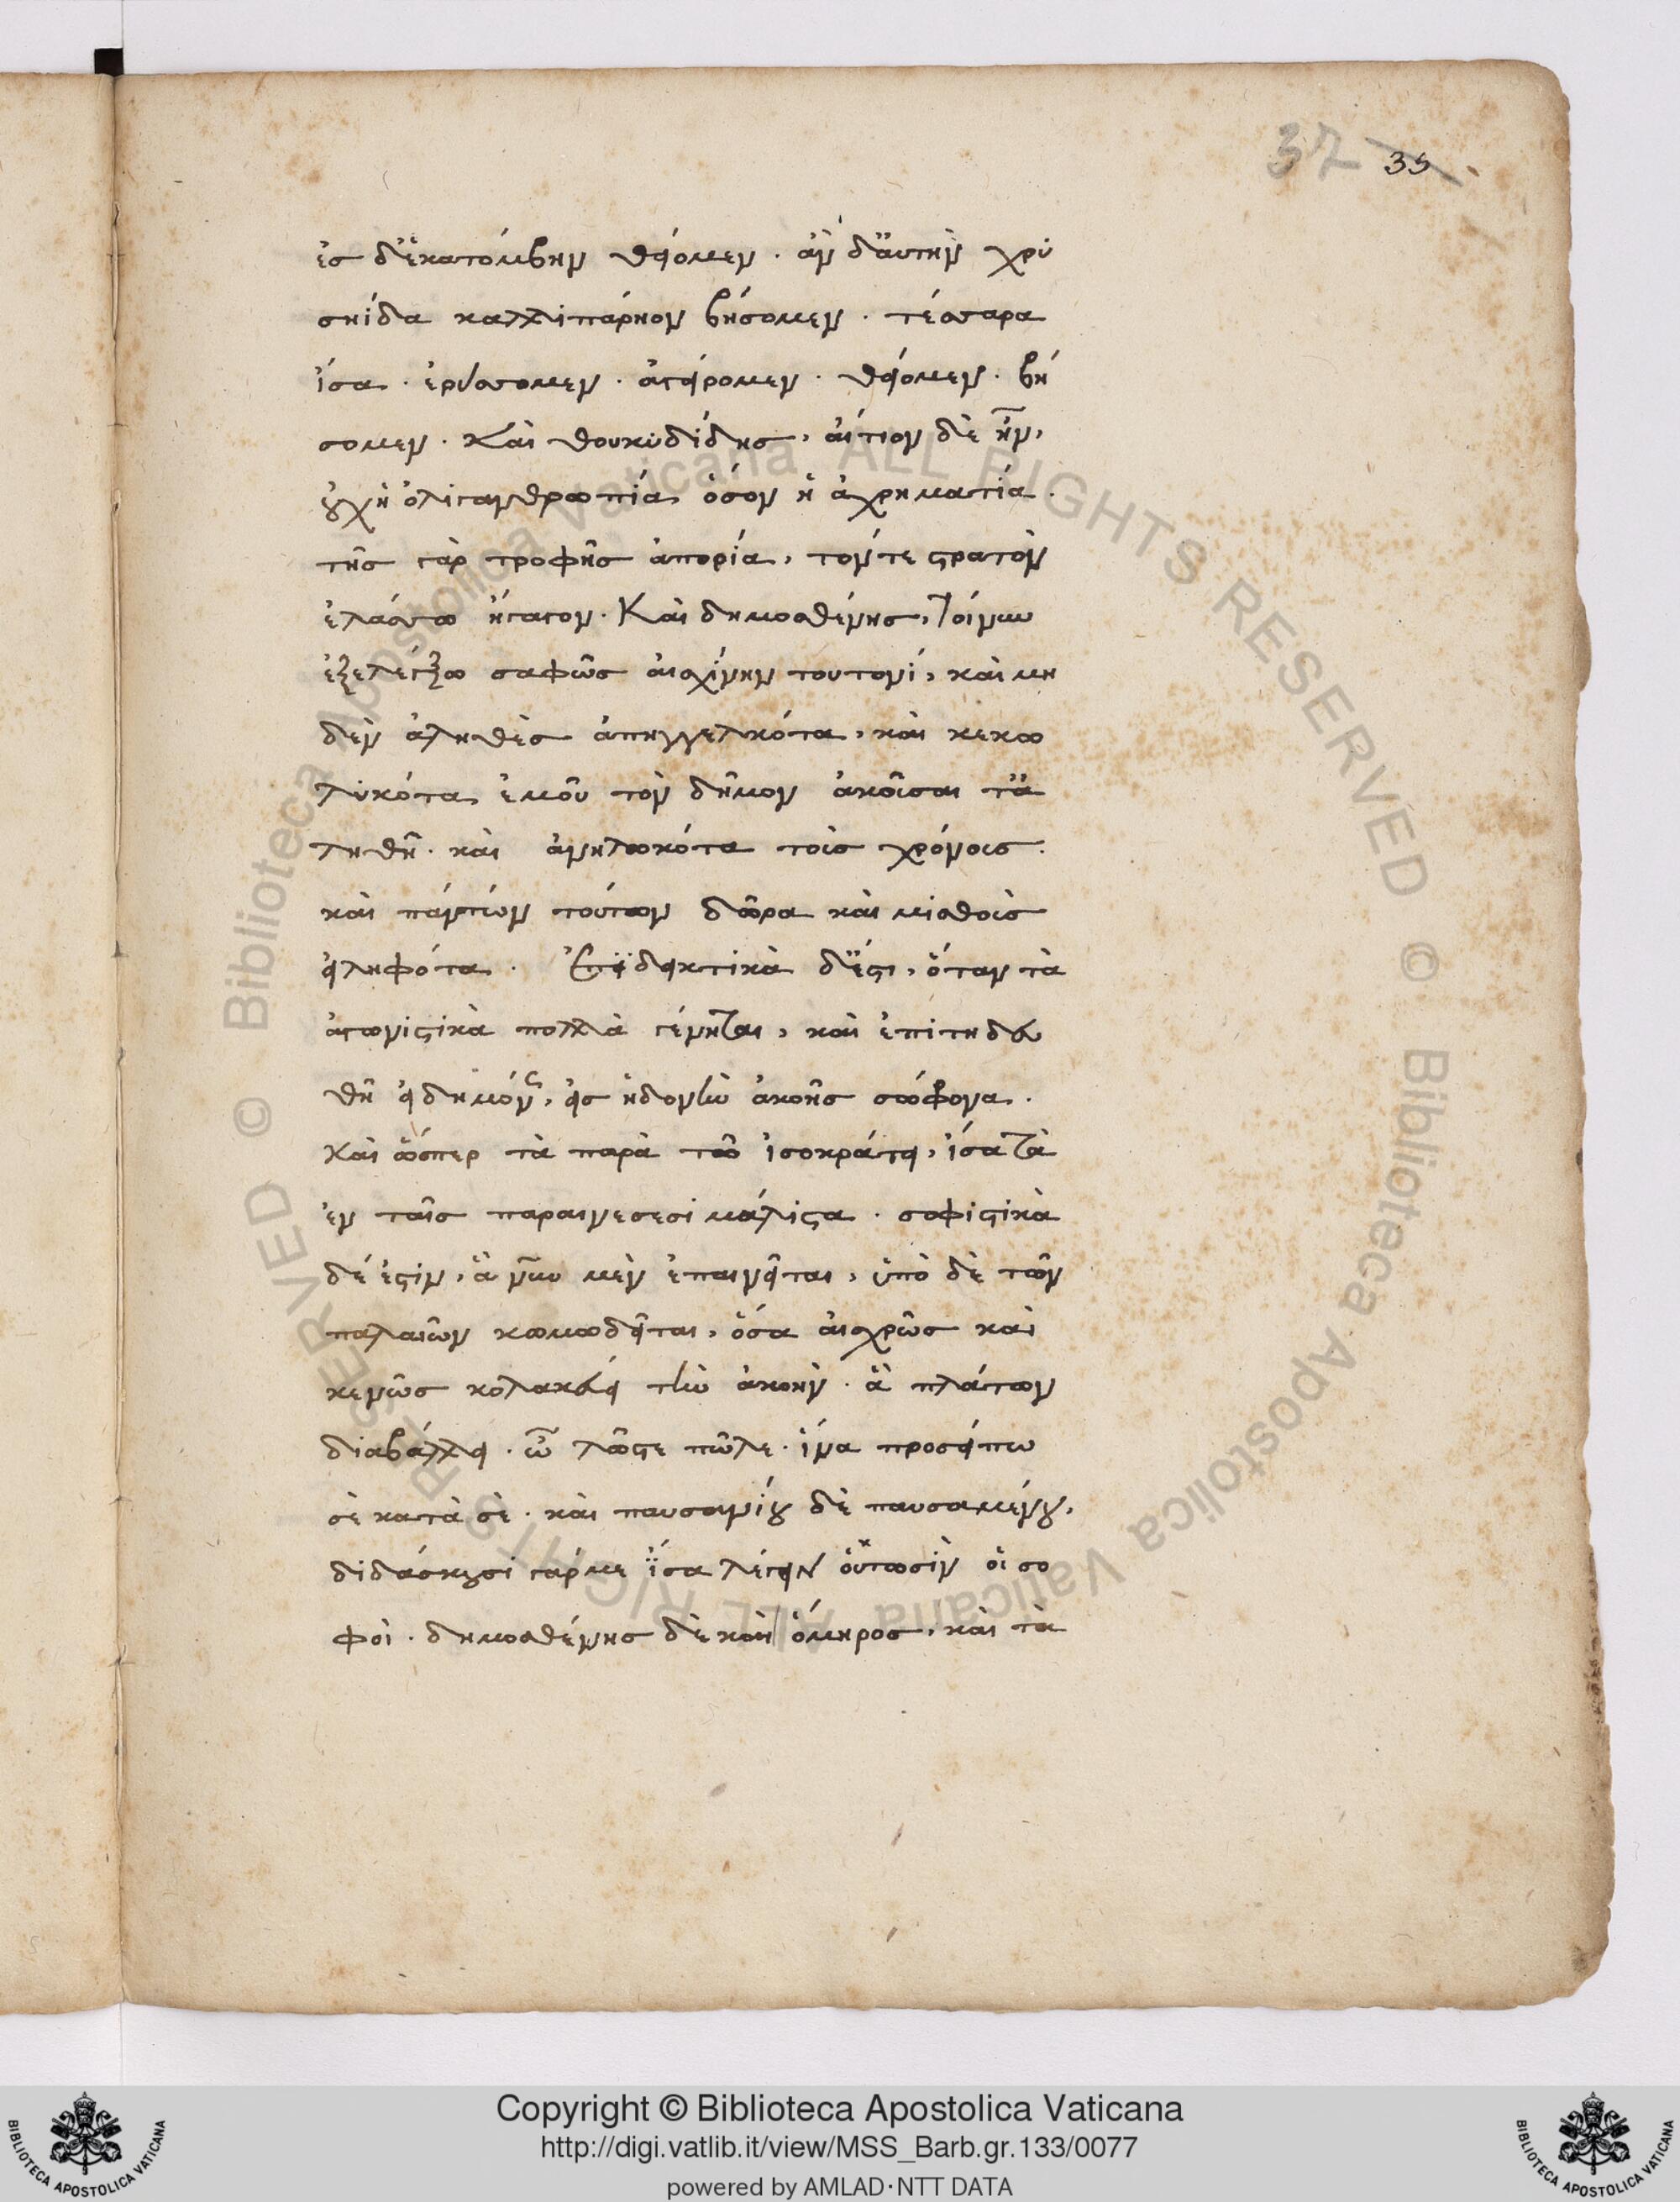 37 35
ἐς δ' ἑκατόμβην θείομεν. ἀν δ' αὐτὴν χρυ
σηίδα καλλιπάρηον βήσομεν. τέσσαρα
ἴσα. ἐρύσσομεν. ἀγείρομεν. θείομεν. βή
σομεν. Καὶ θουκυδίδης, αἴτιον δὲ ἦν,
οὐχ ἡ ὀλιγανθρωπία, ὅσον ἡ ἀχρηματία.
τῆς γὰρ τροφῆς ἀπορία, τόν τε στρατὸν
ἐλάσσω ἤγαγον. Καὶ δημοσθένης, τοίνυν
ἐξελέγξω σαφῶς αἰσχίνην τουτονί, καὶ μη
δὲν ἀληθὲς ἀπηγγελκότα, καὶ κεκω
λυκότα ἐμοῦ τὸν δῆμον ἀκοῦσαι τἀ
ληθῆ. καὶ ἀνηλωκότα τοὺς χρόνους.
καὶ πάντων τούτων δῶρα καὶ μισθοὺς
εἰληφότα. Ἐπιδεικτικὰ δ' ἔστι, ὅταν τὰ
ἀγωνιστικὰ πολλὰ γένηται, καὶ ἐπιτηδευ
θῆ εἰδημόνως, εἰς ἡδονὴν ἀκοῆς σώφρονα.
Καὶ ὥσπερ τὰ παρὰ τῶ ἰσοκράτει, ἴσα τὰ
ἐν ταῖς παραινέσεσι μάλιστα. σοφιστικὰ
δέ ἐστιν, ἃ νῦν μὲν ἐπαινεῖται, ὑπὸ δὲ τῶν
παλαιῶν κωμωδεῖται, ὅσα αἰσχρῶς καὶ
κενῶς κολακεύει τὴν ἀκοήν. ἃ πλάτων
διαβάλλει. ὦ λῶστε πῶλε. ἵνα προσείπω
σὲ κατὰ σὲ. καὶ παυσανίου δὲ παυσαμένου,
διδάσκουσι γάρ με ἴσα λέγειν οὑτωσὶν οἱ σο
φοὶ. δημοσθένης δὲ καὶ ὅμηρος, καὶ τὰ
Copyright © Biblioteca Apostolica Vaticana
http://digi.vatlib.it/view/MSS_Barb.gr.133/0077
powered by AMLAD·NTT DATA